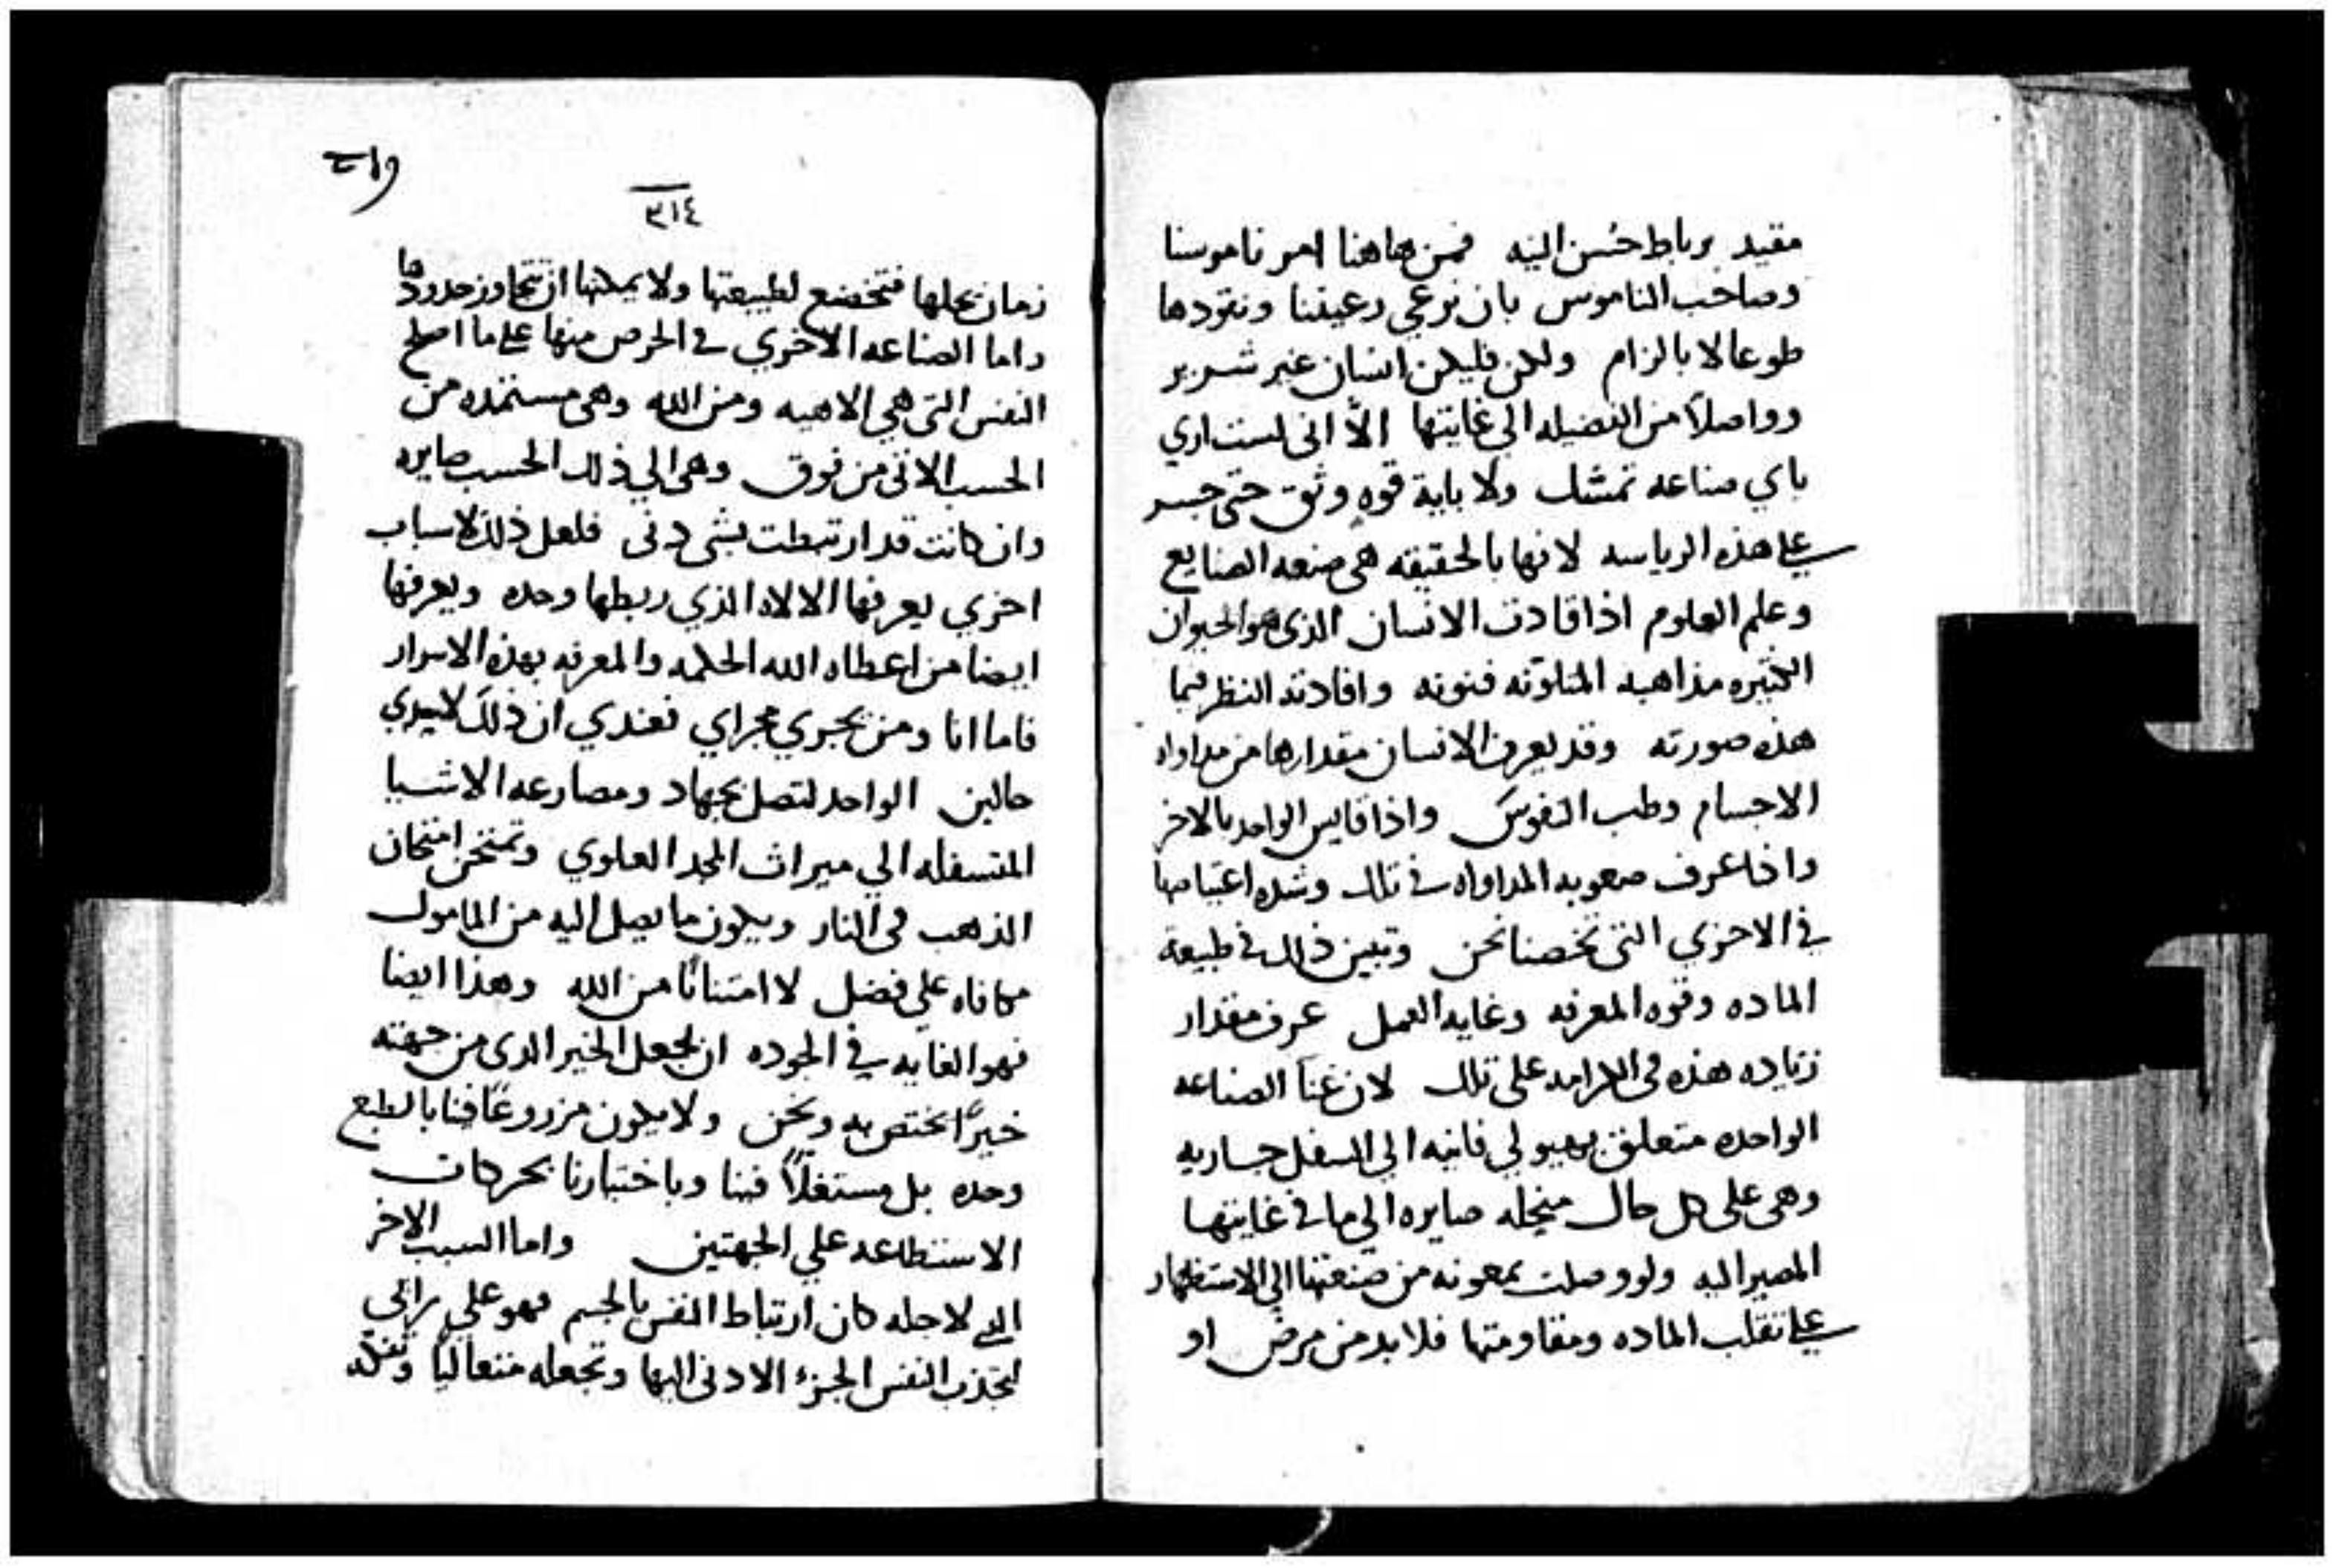 مقيد برباط حُسن النيه فمن هاهنا امر ناموسنا
وصاحب الناموس بان نرعي رعيتنا ونقودها
طوعا لا بالزام ولكن فليكن انسان غير شرير
وواصلاً من الفضيله الي غايتها الاّ اني لست اري
باي صناعه تمسك ولا باية قوه وثق حتى جسر
علي هذه الرياسه لانها بالحقيقه هي صنعه الصنايع
وعلم العلوم اذا قادت الانسان الذي هو الحيوان
الكثيره مذاهبه المتلونه فنونه وافادته النظر فيما
هذه صورته وقد يعرف الانسان مقدارها من مداواه
الاجسام وطب النفوس واذا قايس الواحد بالاخر
واذا عرف صعوبه المداواه في تلك وشده اعتياصها
في الاخري التي تخصنا نحن وتبين ذلك في طبيعة
الماده وقوه المعرفه وغايه العمل عرف مقدار
زياده هذه في الكرامه على تلك لان عنا الصناعه
الواحده متعلق بهيولي فانيه الي اسفل جاريه
وهي على كل حال منحله صايره الي ما في غايتها
المصير اليه ولو وصلت بمعونه من صنعتها الي الاستظهار
علي تقلب الماده ومقاومتها فلا بد من مرض او
والت
٣١٤
زمان يحلها فتخضع لطبيعتها ولا يمكنها ان تتجاوز حدودها
واما الصناعه الاخري في الحرص منها علي ما اصلح
النفس التي هي الاهيه ومن الله وهي مستمده من
الحسب الاتى من فوق وهي الي ذلك الحسب صايره
وان كانت قد ارتبطت بشي دني فلعل ذلك لاسباب
اخري يعرفها الالاه الذي ربطها وحده ويعرفها
ايضا من اعطاه الله الحكمه والمعرفه بهذه الاسرار
فاما انا ومن يجري مجراي فعندي ان ذلك لاحدي
حالين الواحد لتصل بجهاد ومصارعه الاشيا
المتسفله الي ميراث المجد العلوي وتمتحن امتحان
الذهب في النار ويكون ما يصل اليه من المامول
مكافاه علي فضل لا امتنانًا من الله وهذا ايضا
فهو الغايه في الجوده ان يجعل الخير الذي من جهته
خيرًا نختص به ونحن ولا يكون مزروعًا فينا بالطبع
وحده بل مستغلاً فينا وباختيارنا بحركات
الاستطاعه علي الجهتين واما السبب الاخر
الذي لاجله كان ارتباط النفس بالجسم فهو علي رائي
لتجذب النفس الجزء الادنى اليها وتجعله متعاليا